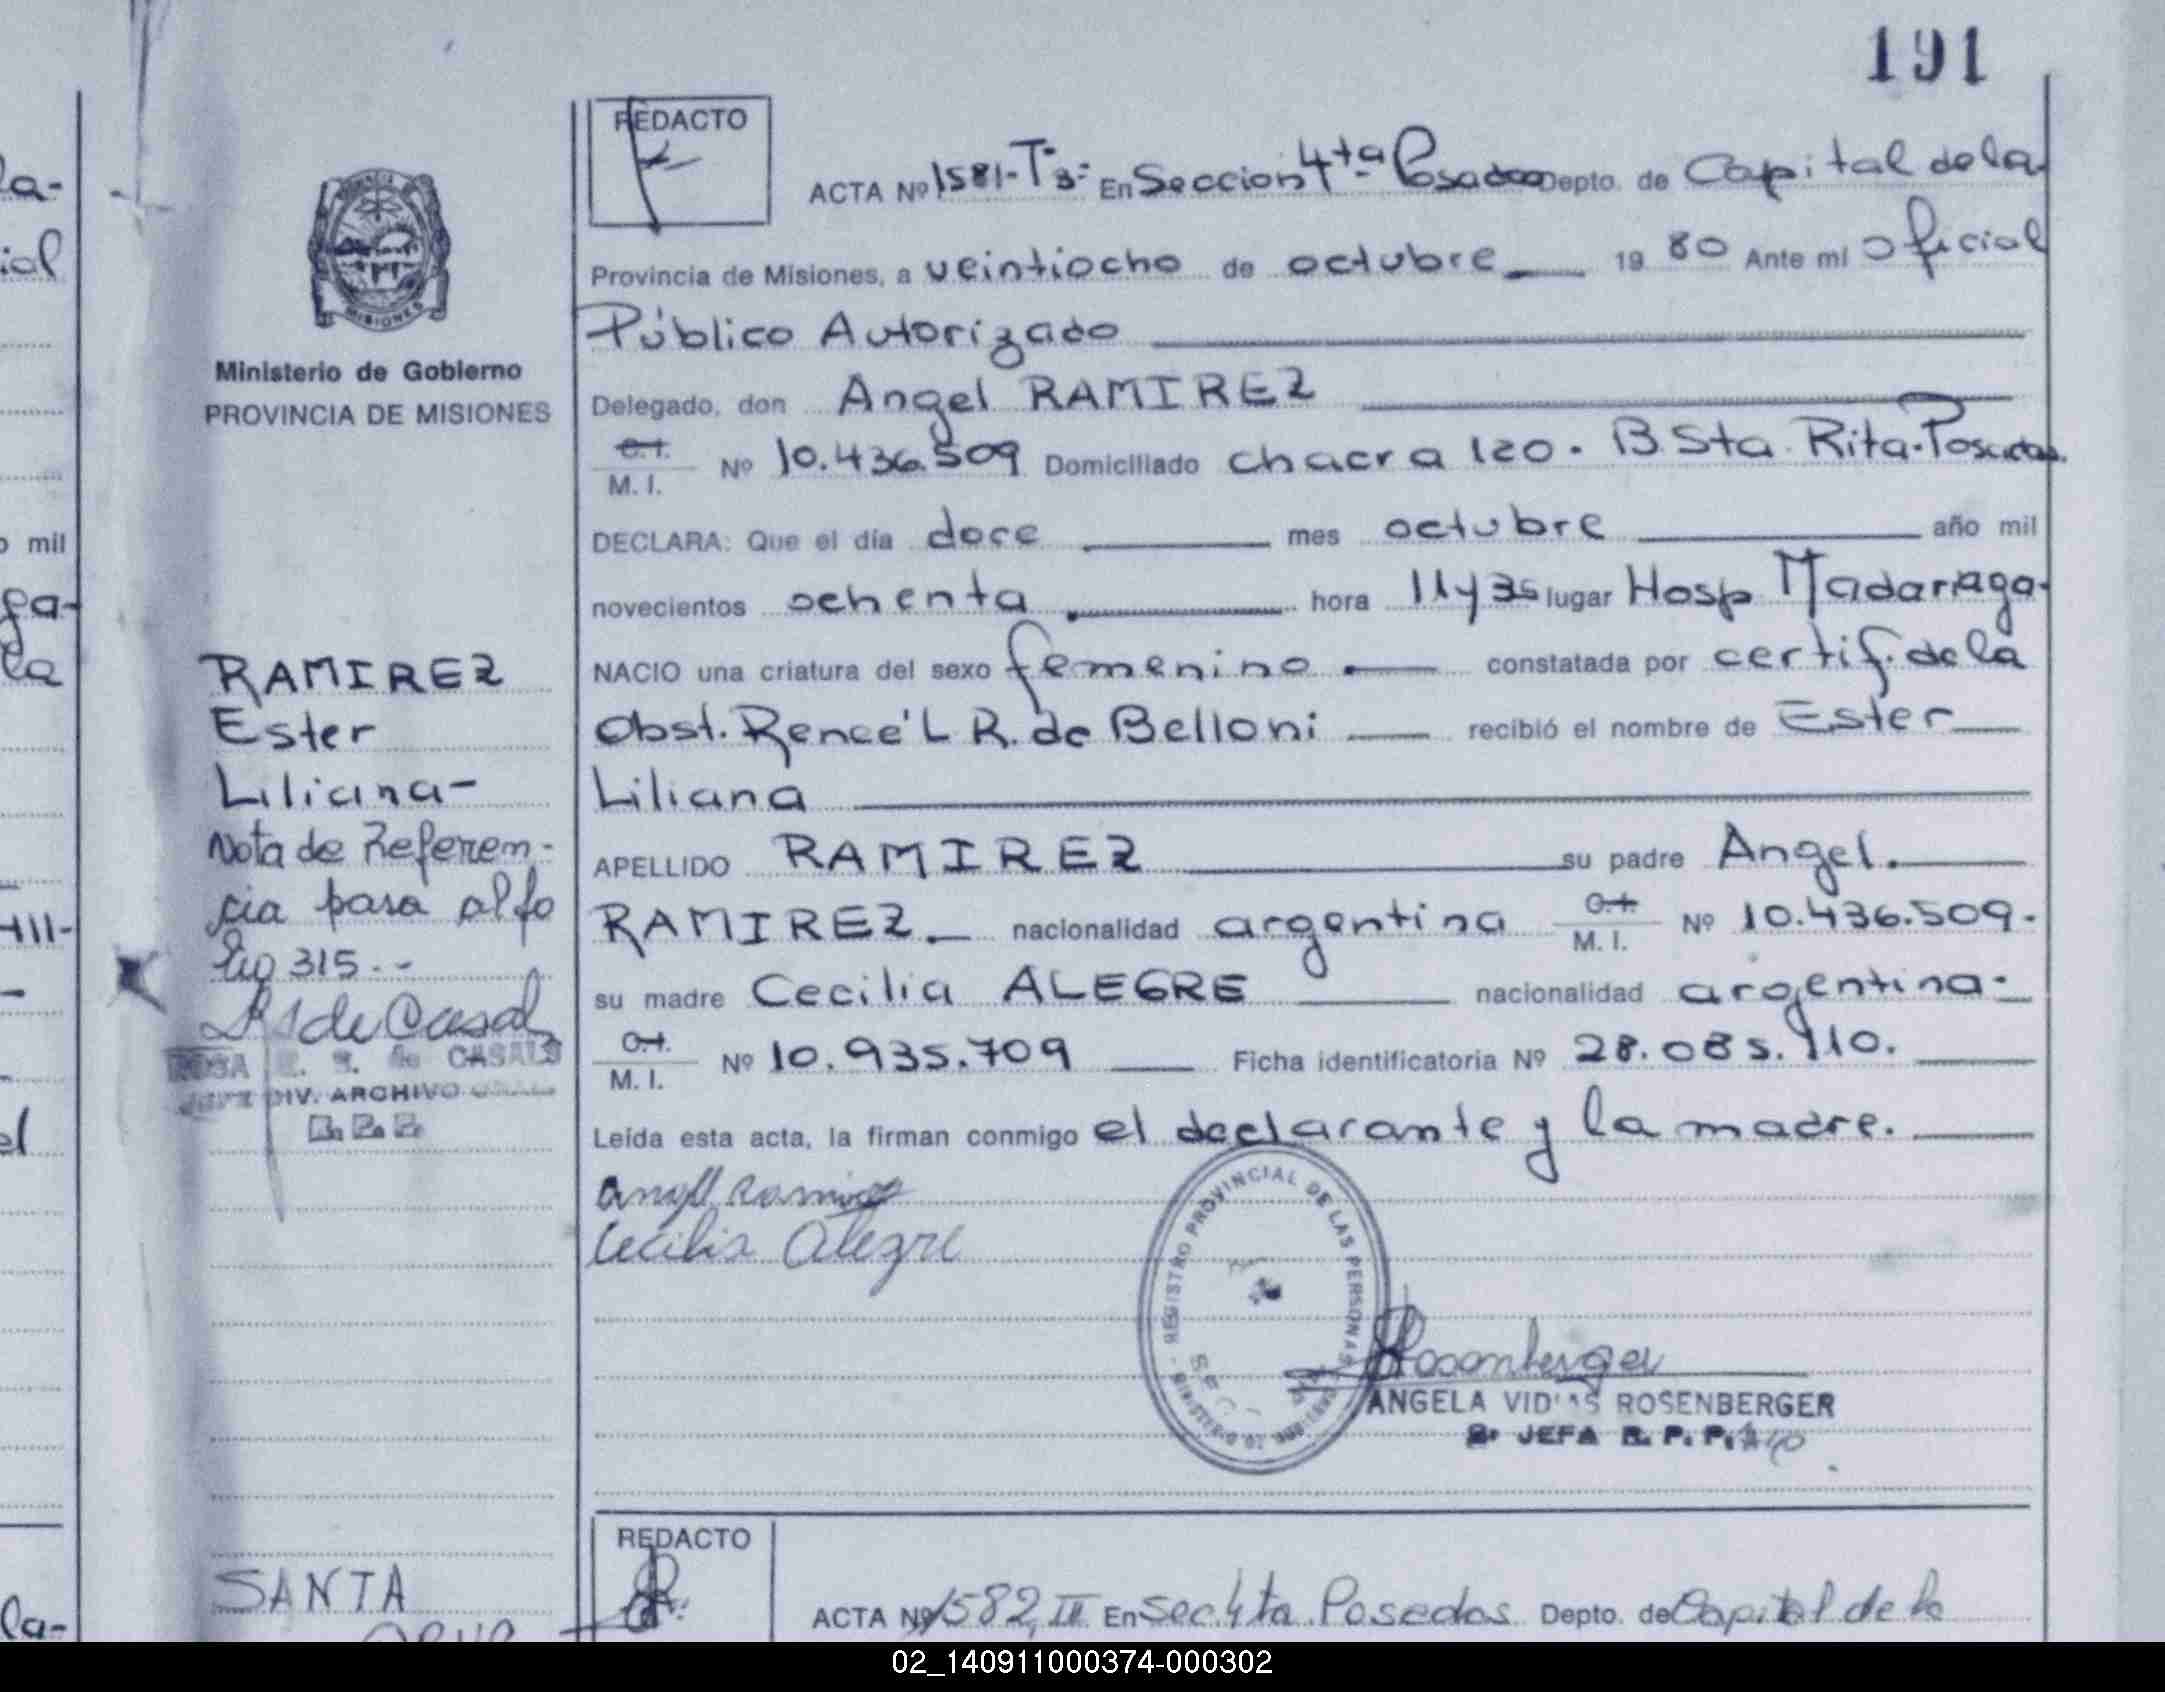 191
REDACTO
ACTA Nº 1581-Tº3- En Seccion 4ta Posadas Depto. de Capital de la
Provincia de Misiones, a veintiocho de octubre 19 80 Ante mi Oficial
Público Autorizado
Delegado, don Angel RAMIREZ
C.I.
M. I. Nº 10.436.509 Domiciliado chacra 120. B Sta. Rita. Posadas.
DECLARA: Que el día doce mes octubre año mil
novecientos ochenta hora 11 y 35 lugar Hosp Madariaga-
NACIO una criatura del sexo femenino constatada por certif. de la
Obst. Reneé L R. de Belloni recibió el nombre de Ester
Liliana
APELLIDO RAMIREZ su padre Angel.
RAMIREZ nacionalidad argentina C.I.
M. I. Nº 10.436.509.
su madre Cecilia ALEGRE nacionalidad argentina
C.I.
M. I. Nº 10.935.709 Ficha identificatoria Nº 28.085.110.
Leída esta acta, la firman conmigo el declarante y la madre.
Angel Ramirez
Cecilia Alegre
REGISTRO PROVINCIAL DE LAS PERSONAS
Rosenberger
ANGELA VIDAS ROSENBERGER
JEFA R. P. P.
MISIONES
Ministerio de Gobierno
PROVINCIA DE MISIONES
RAMIREZ
Ester
Liliana-
Nota de Referen-
cia pasa al fo
lio 315.-
de Casals
ROSA E. S. de CASALS
JEFE DIV. ARCHIVO GRAL
R. P. P.
SANTA
REDACTO
ACTA Nº 1582, III En Sec 4ta Posadas Depto. de Capital de la
la-
ial
o mil
la
el
la-
02_140911000374-000302